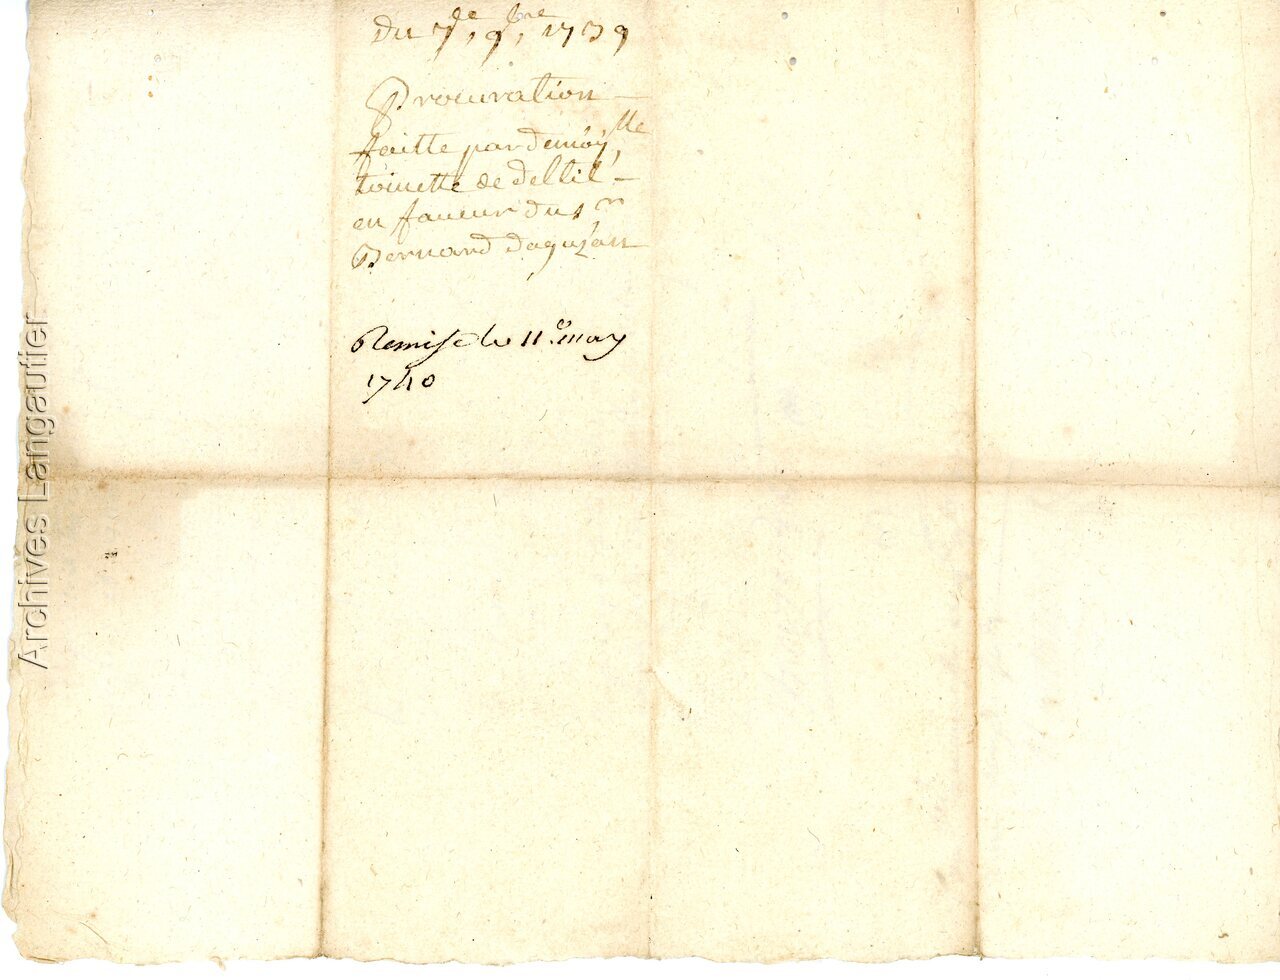 Du 7e, 9bre, 1739
Procuration
faitte par demoylle
toinette de dellil
en faueur du sr
Bernard daguzan
Remise le 11e may
1740
Archives Langautier